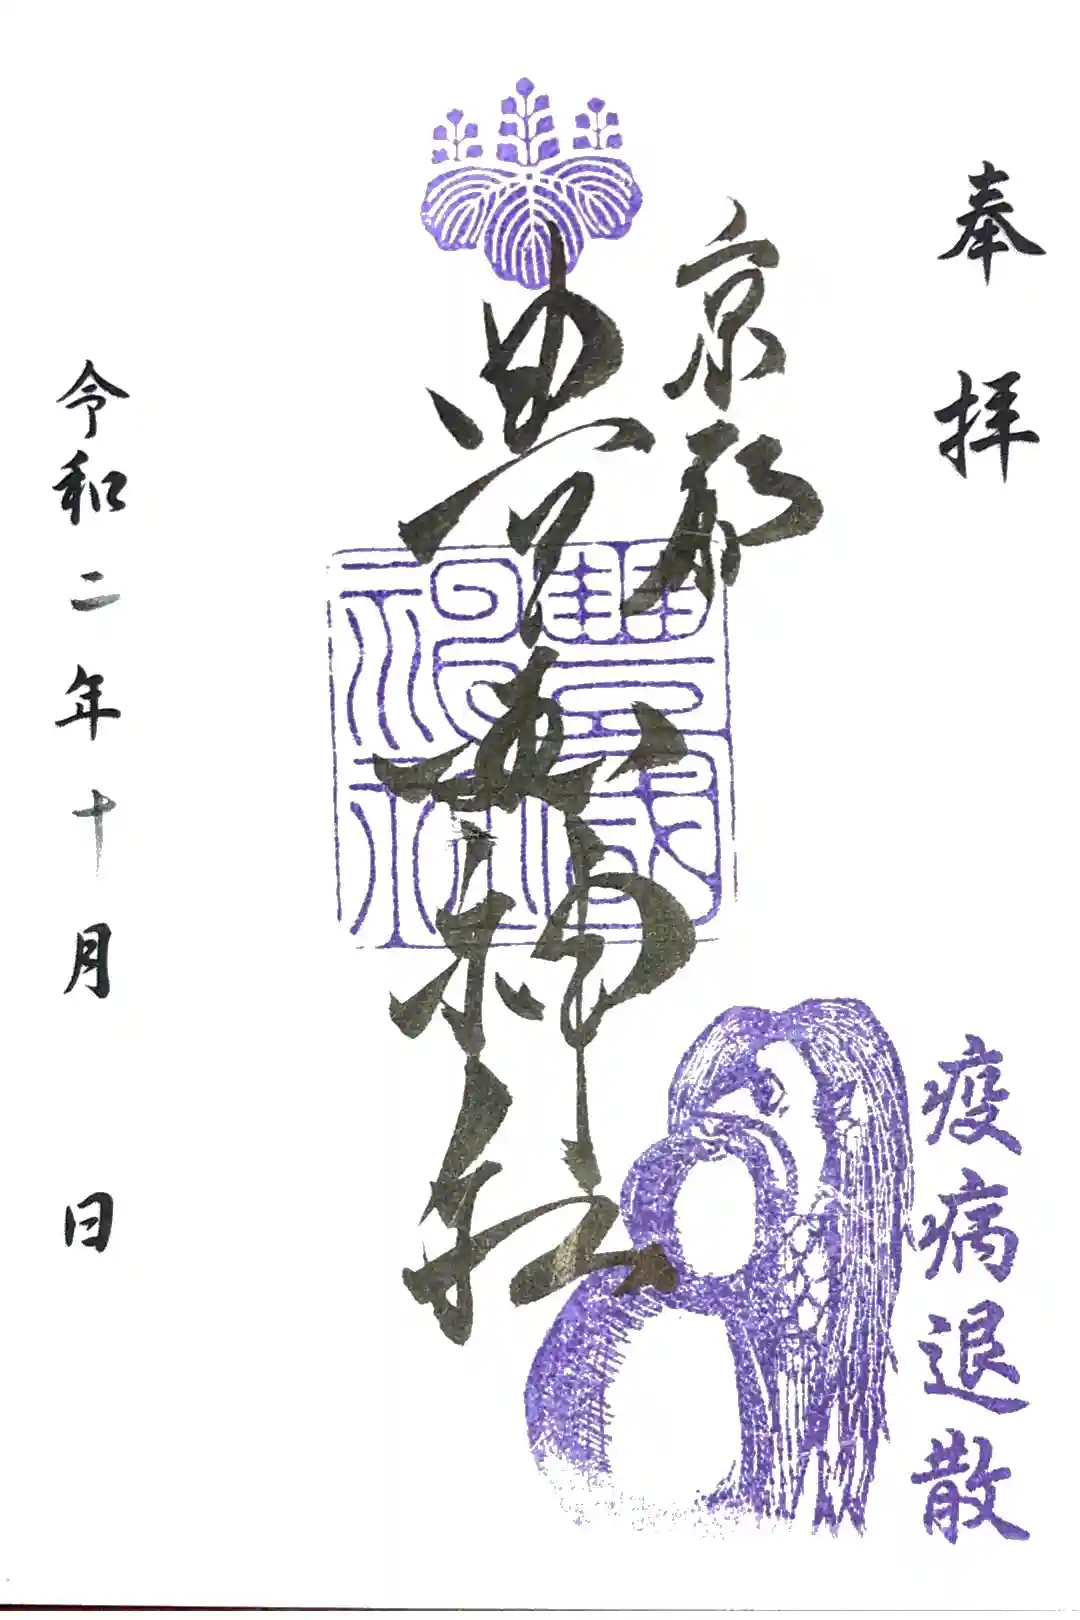 奉拝
京都
豊国神社
豊國神社
疫病退散
令和二年十月 日